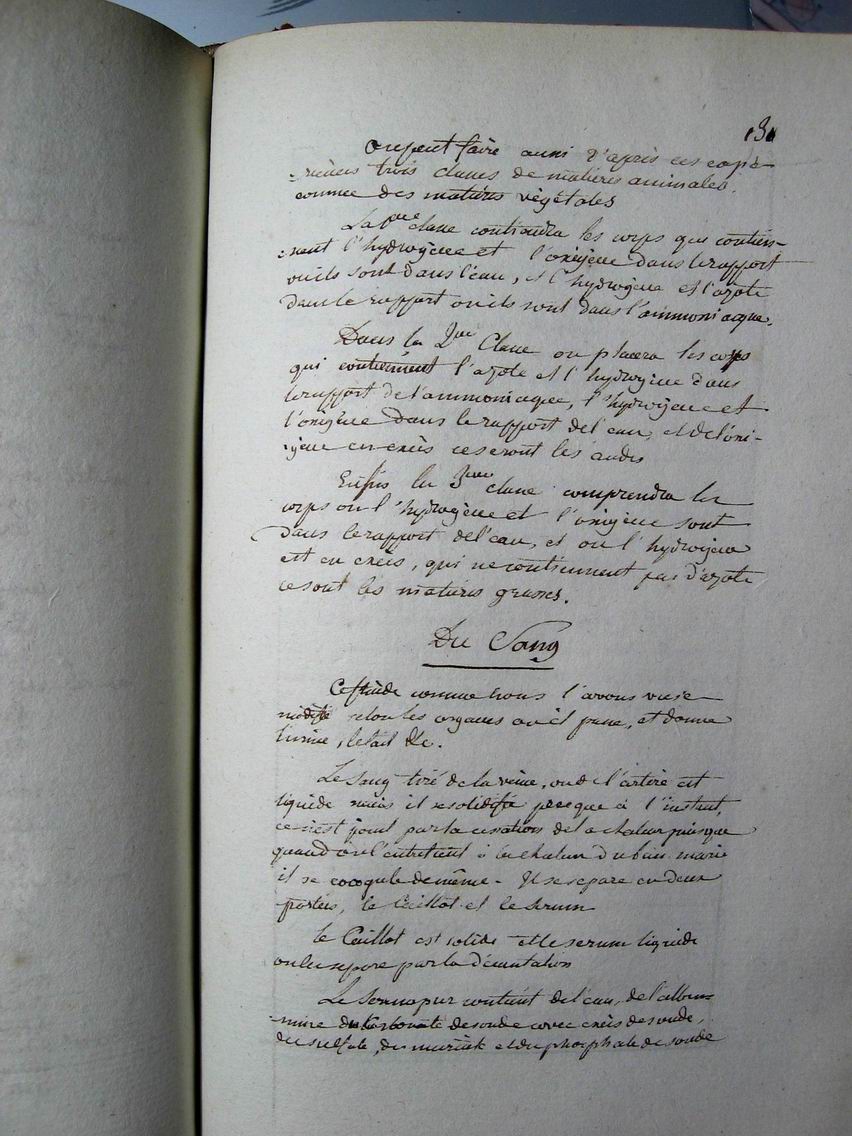 131
On peut faire aussi d'après ces expé-
-riences trois classes de matières animales.
comme des matières végétales
La 1ere classe contiendra les corps qui contien-
-nent l'hydrogène et l'oxigène dans le rapport
où ils sont dans l'eau, et l'hydrogène et l'azote
dans le rapport où ils sont dans l'ammoniaque.
Dans la 2me Classe on placera les corps
qui contiennent l'azote et l'hydrogène dans
le rapport de l'ammoniaque, l'hydrogène et
l'oxigène dans le rapport de l'eau, et de l'oxi-
-gène en excès ce seront les acides
Enfin la 3eme classe comprendra les
corps où l'hydrogène et l'oxigène sont
dans le rapport de l'eau, et où l'hydrogène
est en excès, qui ne contiennent pas d'azote
ce sont les matières grasses.
Du Sang
Ce fluide comme nous l'avons vu se
modifie selon les organes où il passe, et donne
l'urine, le lait &c.
Le sang tiré de la veine, ou de l'artère est
liquide mais il se solidifie presque à l'instant,
ce n'est point par la cessation de la chaleur puisque
quand on l'entretient à la chaleur du bain marie
il se coagule de même. Il se separe en deux
parties, le Caillot et le serum
le Caillot est solide et le serum liquide
on les separe par la décantation
Le serum pur contient de l'eau, de l'albu-
-mine du carbonate de soude avec excès de soude,
du sulfate, du muriate et du phosphate de soude